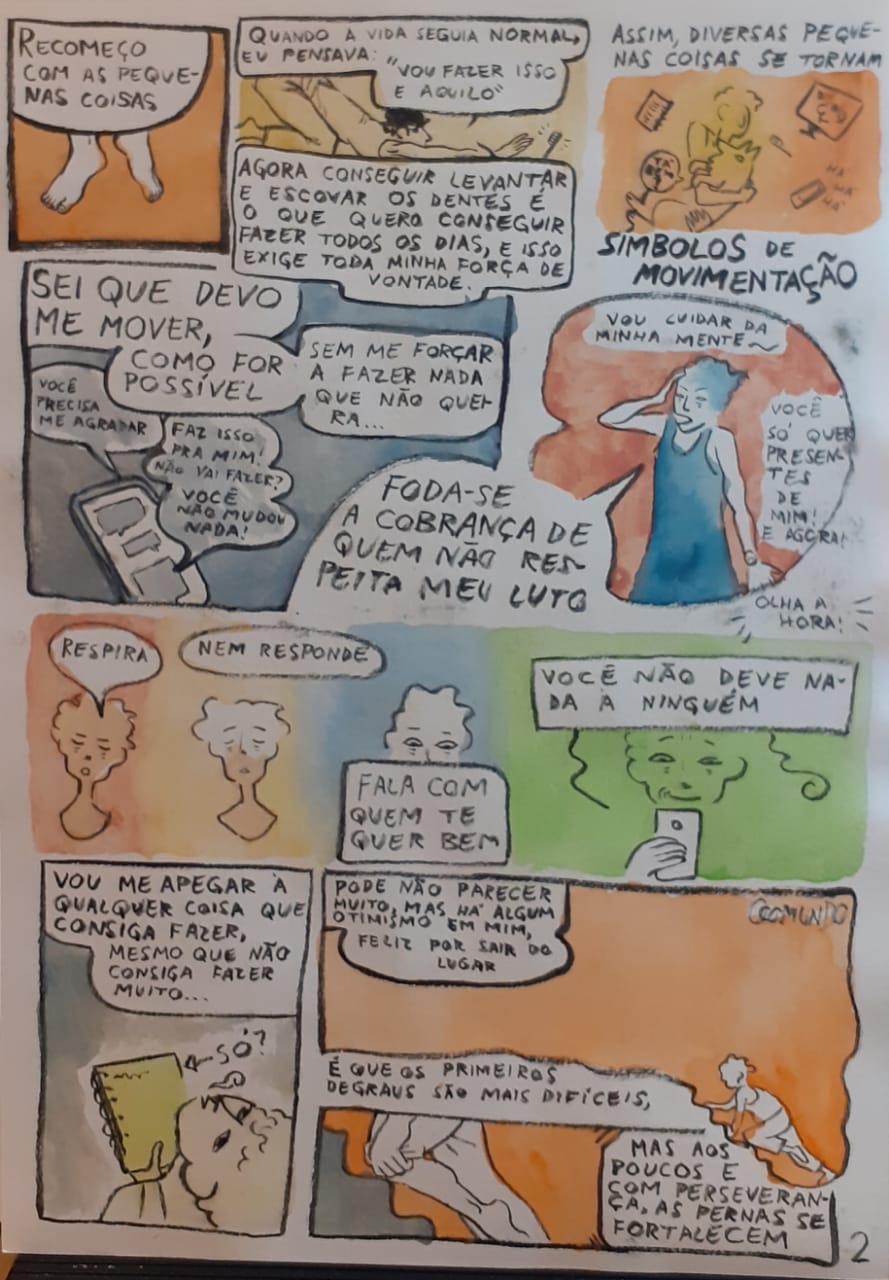 RECOMEÇO
COM AS PEQUE-
NAS COISAS
QUANDO A VIDA SEGUIA NORMAL,
EU PENSAVA:
"VOU FAZER ISSO
E AQUILO"
AGORA CONSEGUIR LEVANTAR
E ESCOVAR OS DENTES É
O QUE QUERO CONSEGUIR
FAZER TODOS OS DIAS, E ISSO
EXIGE TODA MINHA FORÇA DE
VONTADE.
ASSIM, DIVERSAS PEQUE-
NAS COISAS SE TORNAM
HA
HA
HA
SÍMBOLOS DE
MOVIMENTAÇÃO
SEI QUE DEVO
ME MOVER,
COMO FOR
POSSÍVEL
SEM ME FORÇAR
A FAZER NADA
QUE NÃO QUEI-
RA...
VOCÊ
PRECISA
ME AGRADAR
FAZ ISSO
PRA MIM!
NÃO VAI FAZER?
VOCÊ
NÃO MUDOU
NADA!
FODA-SE
A COBRANÇA DE
QUEM NÃO RES-
PEITA MEU LUTO
VOU CUIDAR DA
MINHA MENTE~
VOCÊ
SÓ QUER
PRESEN-
TES
DE
MIM!
E AGORA!
OLHA A
HORA!
RESPIRA
NEM RESPONDE
FALA COM
QUEM TE
QUER BEM
VOCÊ NÃO DEVE NA-
DA À NINGUÉM
VOU ME APEGAR À
QUALQUER COISA QUE
CONSIGA FAZER,
MESMO QUE NÃO
CONSIGA FAZER
MUITO...
SÓ?
PODE NÃO PARECER
MUITO, MAS HÁ ALGUM
OTIMISMO EM MIM,
FELIZ POR SAIR DO
LUGAR
É QUE OS PRIMEIROS
DEGRAUS SÃO MAIS DIFÍCEIS,
MAS AOS
POUCOS E
COM PERSEVERAN-
ÇA, AS PERNAS SE
FORTALECEM
2